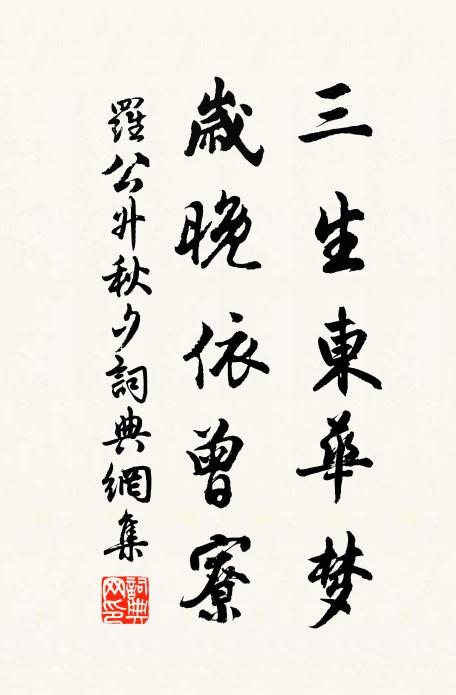 三生東華梦
歲晚依曾寮
羅公升秋夕詞典網集
詞典网印